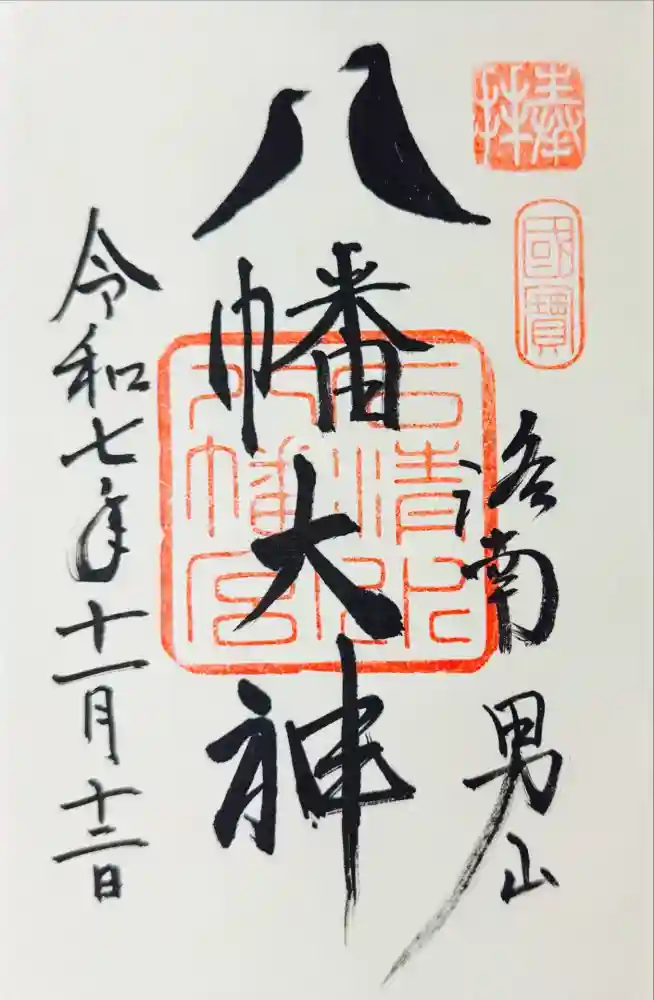 奉拝
國寶
洛南 男山
八幡大神
石清水
八幡宮
令和七年十一月十二日